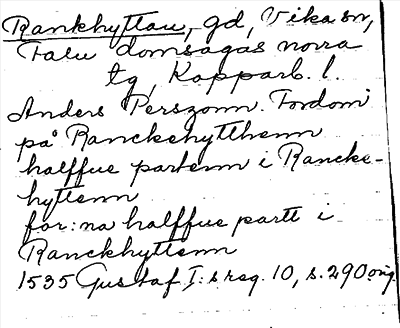 Rankhyttau, gd, Vika sn,
Falu domsagas norra
tg, Kopparb. l.
Anders Perszonn. Fordom
på Ranckehytthenn
halffue partenn i Rancke-
hyttenn
for:na halffue partt i
Ranckhyttenn
1535 Gustaf I:s reg. 10, s. 290 orig.